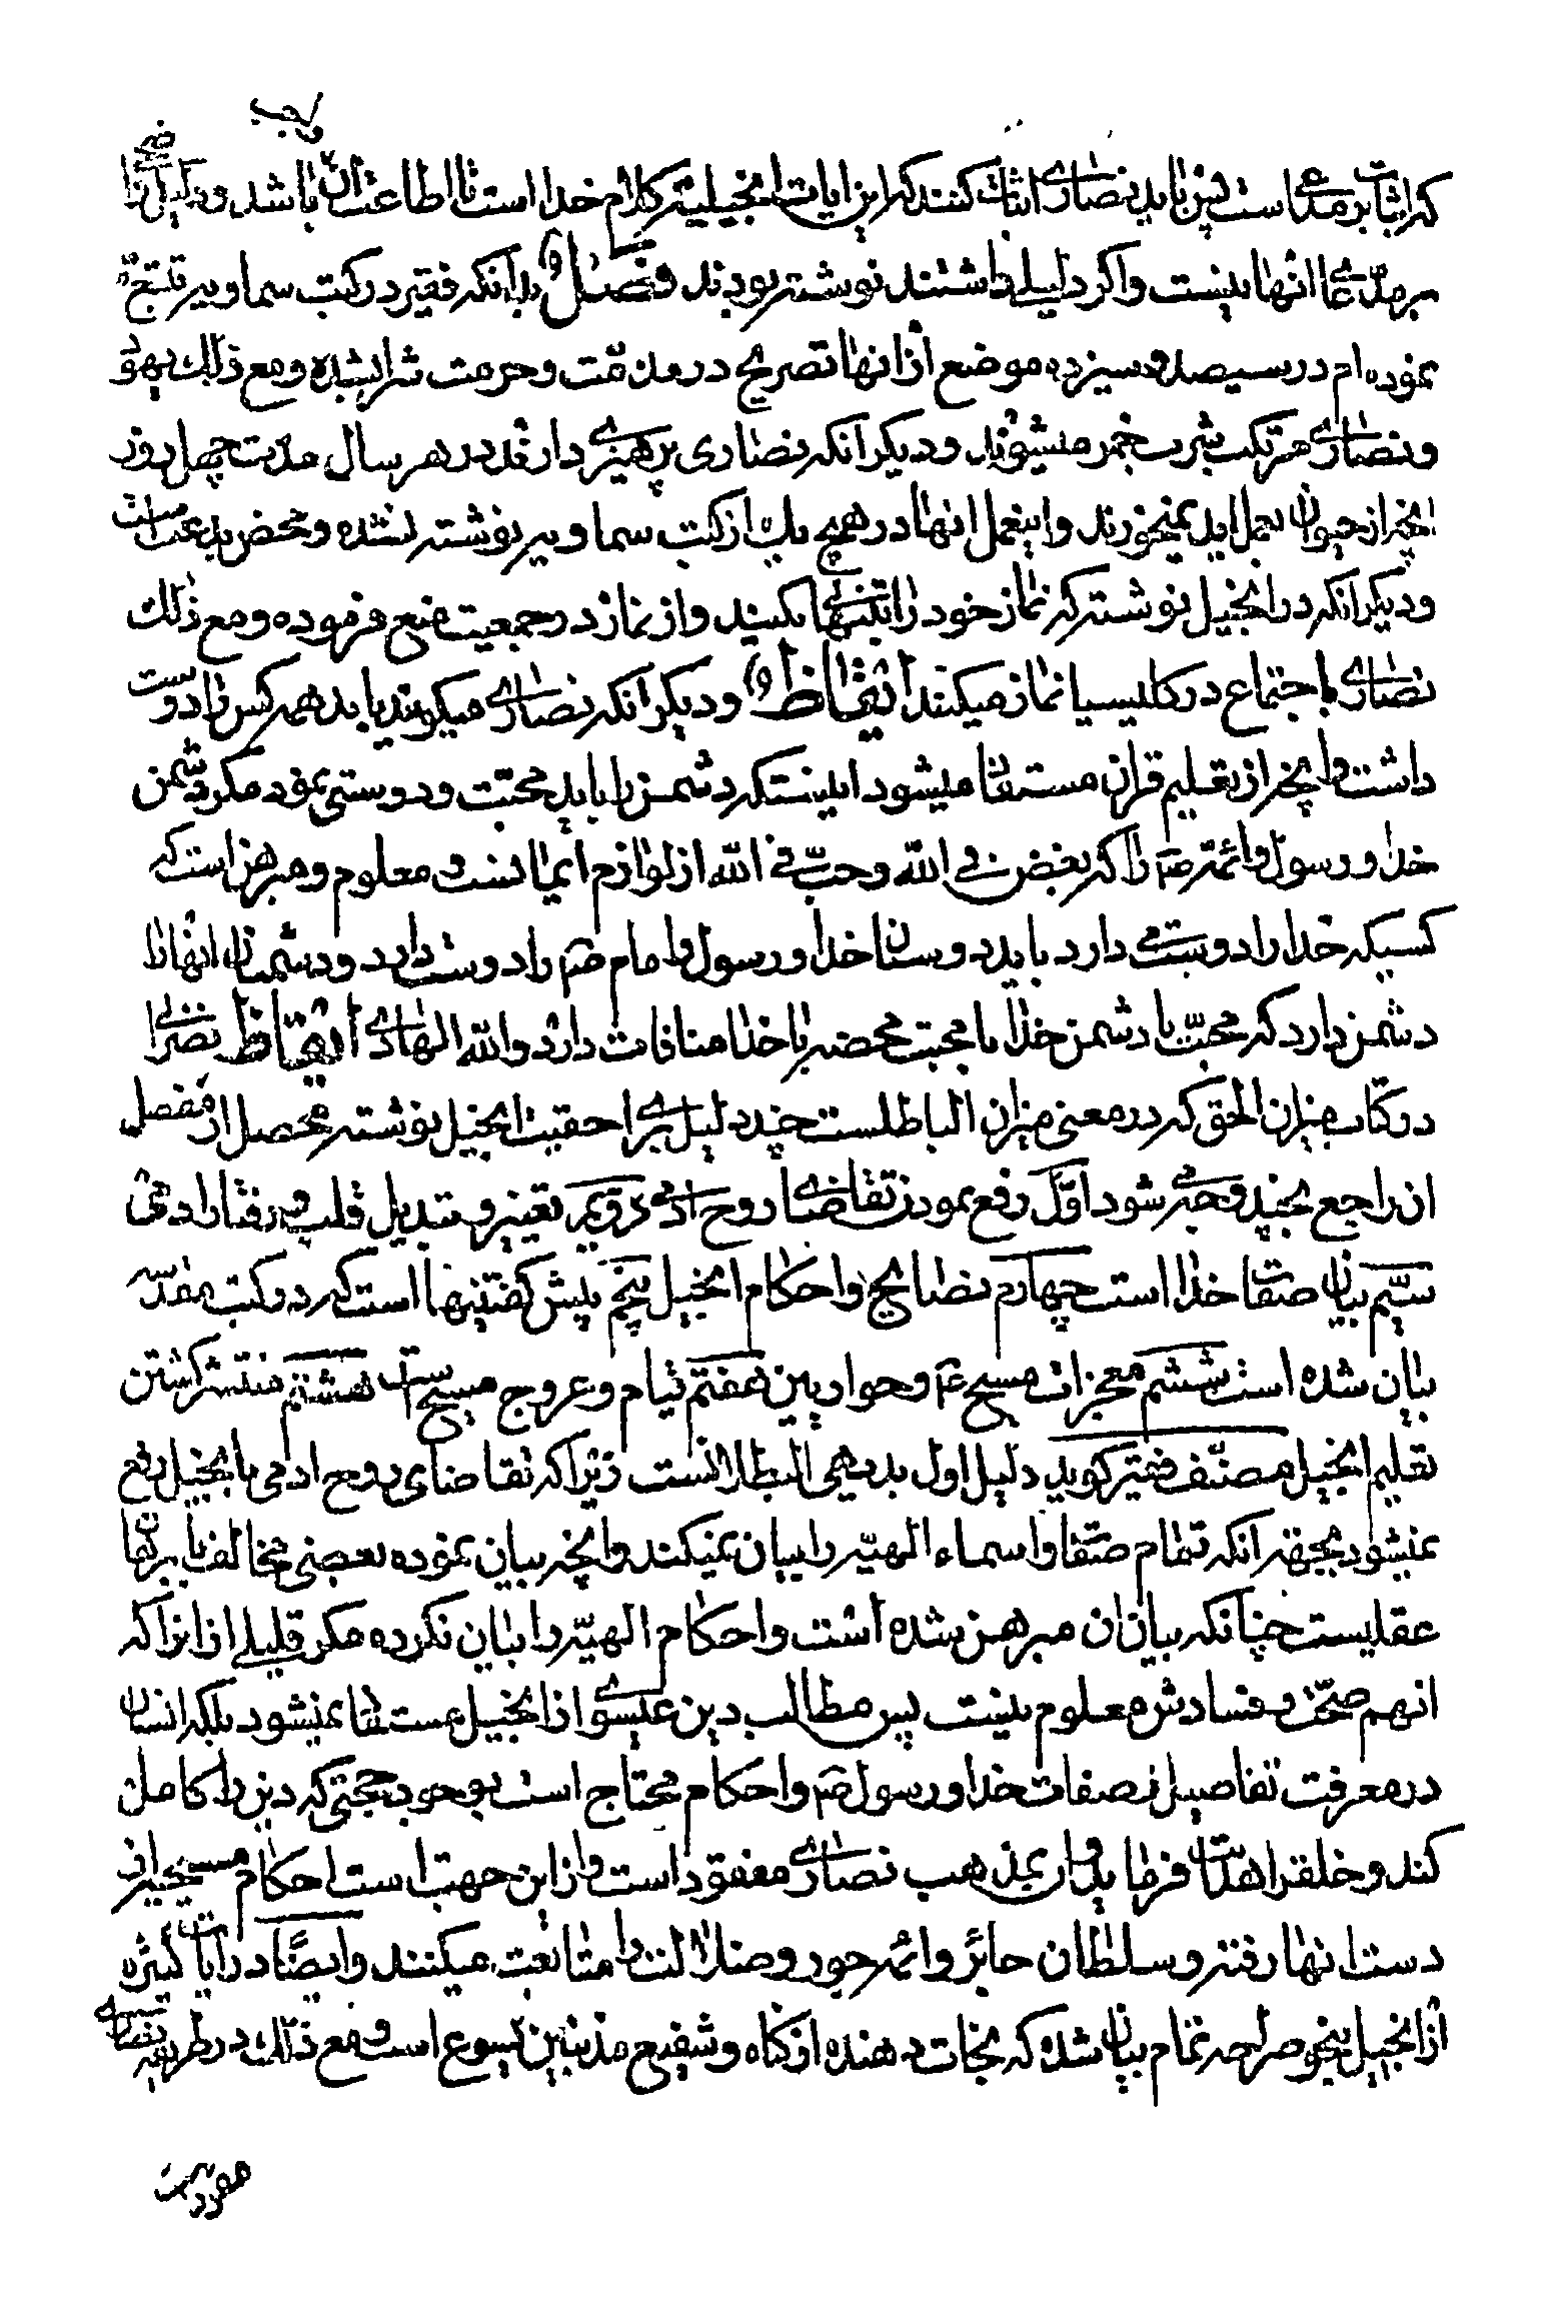 واجب
که اثبات بر مدعی است پس باید نصاری اثبات کنند که این ایات انجیلیه کلام خدا است تا اطاعت آن باشد و دلیل
بر مدّعای انها نیست واکر دلیلی داشتند نوشته بودند فصل بدانکه فقیر در کتب سماویه تتبع
نموده ام در سیصد و سیزده موضع از انها تصریح در مذمّت و حرمت شراب شده و مع ذلک یهود
و نصاری مرتکب شرب خمر میشوند و دیکر انکه نصاری پرهیزی دارند در هر سال مدت چهل روز
انچه از حیوان بعمل اید نمیخورند و اینعمل انها در هیچ یک از کتب سماویه نوشته نشده و محض بدعت است
و دیکر انکه در انجیل نوشته که نماز خود را بتنهائی بکنید و از نماز در جمعیت منع فرموده و مع ذلک
نصاری باجتماع در کلیسیا نماز میکنند ایقاظ و دیکر انکه نصاری میکویند باید همه کس را دوست
داشت و انچه از تعلیم قران مستفاد میشود اینستکه دشمن را باید محبّت و دوستی نمود مکر دشمن
خدا و رسول و ائمه ص را که بغض فی الله و حبّ فی الله از لوازم ایمانست و معلوم و مبرهن است که
کسیکه خدا را دوست می دارد باید دوستان خدا و رسول و امام ص را دوست دارد و دشمنان انها را
دشمن دارد که محبّت با دشمن خدا با محبت محضه با خدا منافات دارد والله الهادی ایقاظ نصرانی
در کتاب میزان الحق که در معنی میزان الباطلست چند دلیل برای حقیت انجیل نوشته محصل از مفصل
ان راجع بچند وجه می شود اوّل رفع نمودن تقاضای روح ادمی دویم تغییر و تبدیل قلب و رفتار ادمی
سیّم بیان صفات خدا است چهارم نصایح و احکام انجیل پنجم پیش کفتنیها است که در کتب مقدسه
بیان شده است ششم معجزات مسیح ع و حواریین هفتم قیام و عروج مسیح است هشتم منتشر کشتن
تعلیم انجیل مصنّف فقیر کوید دلیل اول بدیهی البطلانست زیرا که تقاضای روح ادمی با انجیل رفع
نمیشود بجهة انکه تمام صفات و اسماء الهیّه را بیان نمیکند و انچه بیان نموده بعضی مخالف با برهان
عقلیست چنانکه بیان ان مبرهن شده است و احکام الهیّه را بیان نکرده مکر قلیلی از انرا که
انهم صحّت و فسادش معلوم نیست پس مطالب دین عیسوی از انجیل مستفاد نمیشود بلکه انسان
در معرفت تفاصیل صفات خدا و رسول ص و احکام محتاج است بوجود حجتی که دین را کامل
کند و خلق را هدایت فرماید و ان بمذهب نصاری مفقود است و از این جهت است احکام مسیح از
دست انها رفته و سلطان جائر و ائمه جور و ضلالت را متابعت میکنند و ایضًا در ایات کثیره
از انجیل بنحو صراحه تمام بیان شده که نجات دهنده از کناه و شفیع مذنبین یسوع است و مع ذلک در طریقه نصاری